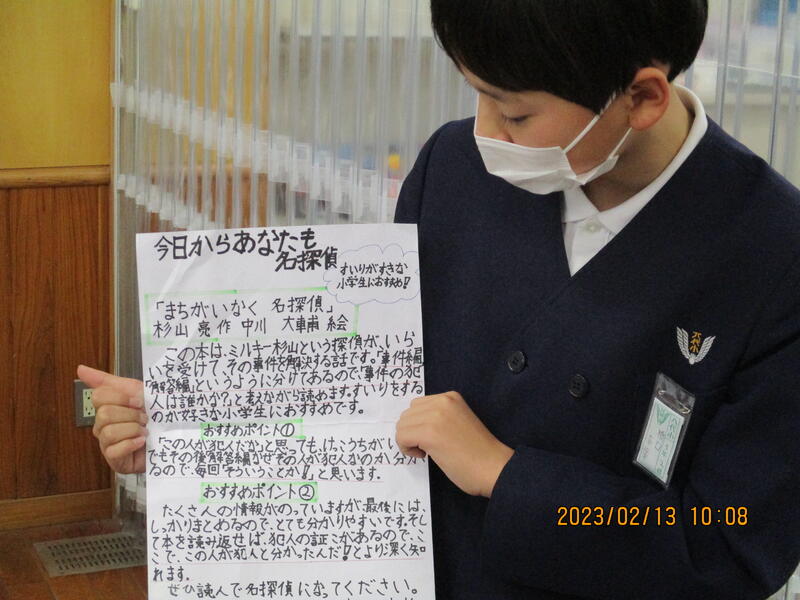 今日からあなたも
名探偵
すいりがすきな
小学生におすすめ!!
「まちがいなく 名探偵」
杉山 亮 作 中川 大輔 絵
この本は、ミルキー杉山という探偵が、いら
いを受けて、その事件を解決する話です。「事件編」
「解答編」というように分けてあるので「事件の犯
人は誰かな?」と考えながら読めます。すいりをする
のが好きな小学生におすすめです。
おすすめポイント①
「この人が犯人だな」と思っても、けっこうちがい
でもその後「解答編」がなぜその人が犯人なのか分か
るので、毎回「そういうことか!!」と思います。
おすすめポイント②
たくさんの情報がのっていますが、最後には、
しっかりまとめるので、とても分かりやすいです。そし
て本を読み返せば、犯人の証こがあるので、「こ
こで、この人が犯人と分かったんだ!」とより深く知
れます。
ぜひ読んで名探偵になってください。
六和小
2023/02/13 10:08